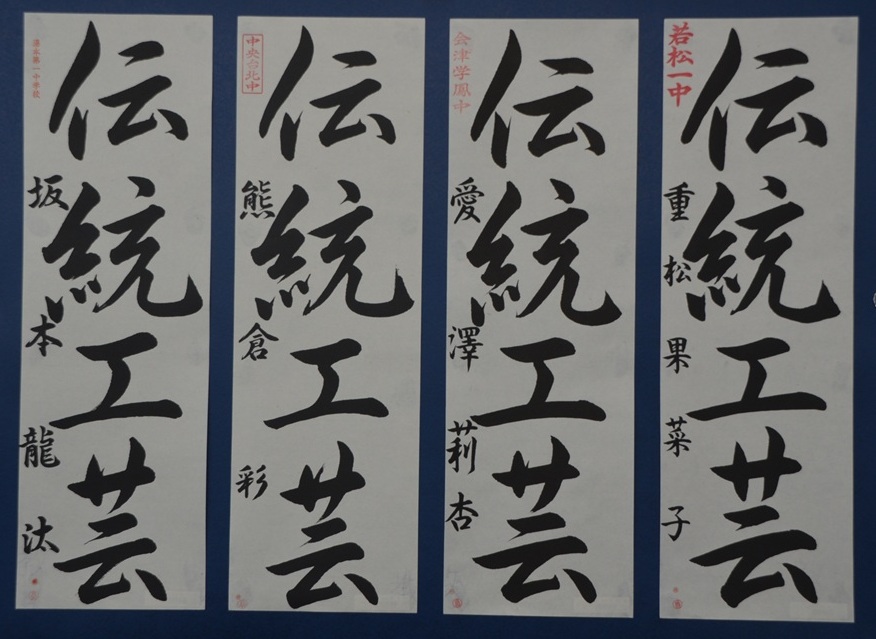 伝統工芸
若松一中
重松果菜子
伝統工芸
会津学鳳中
愛澤莉杏
伝統工芸
中央台北中
熊倉彩
伝統工芸
湯本第一中学校
坂本龍汰